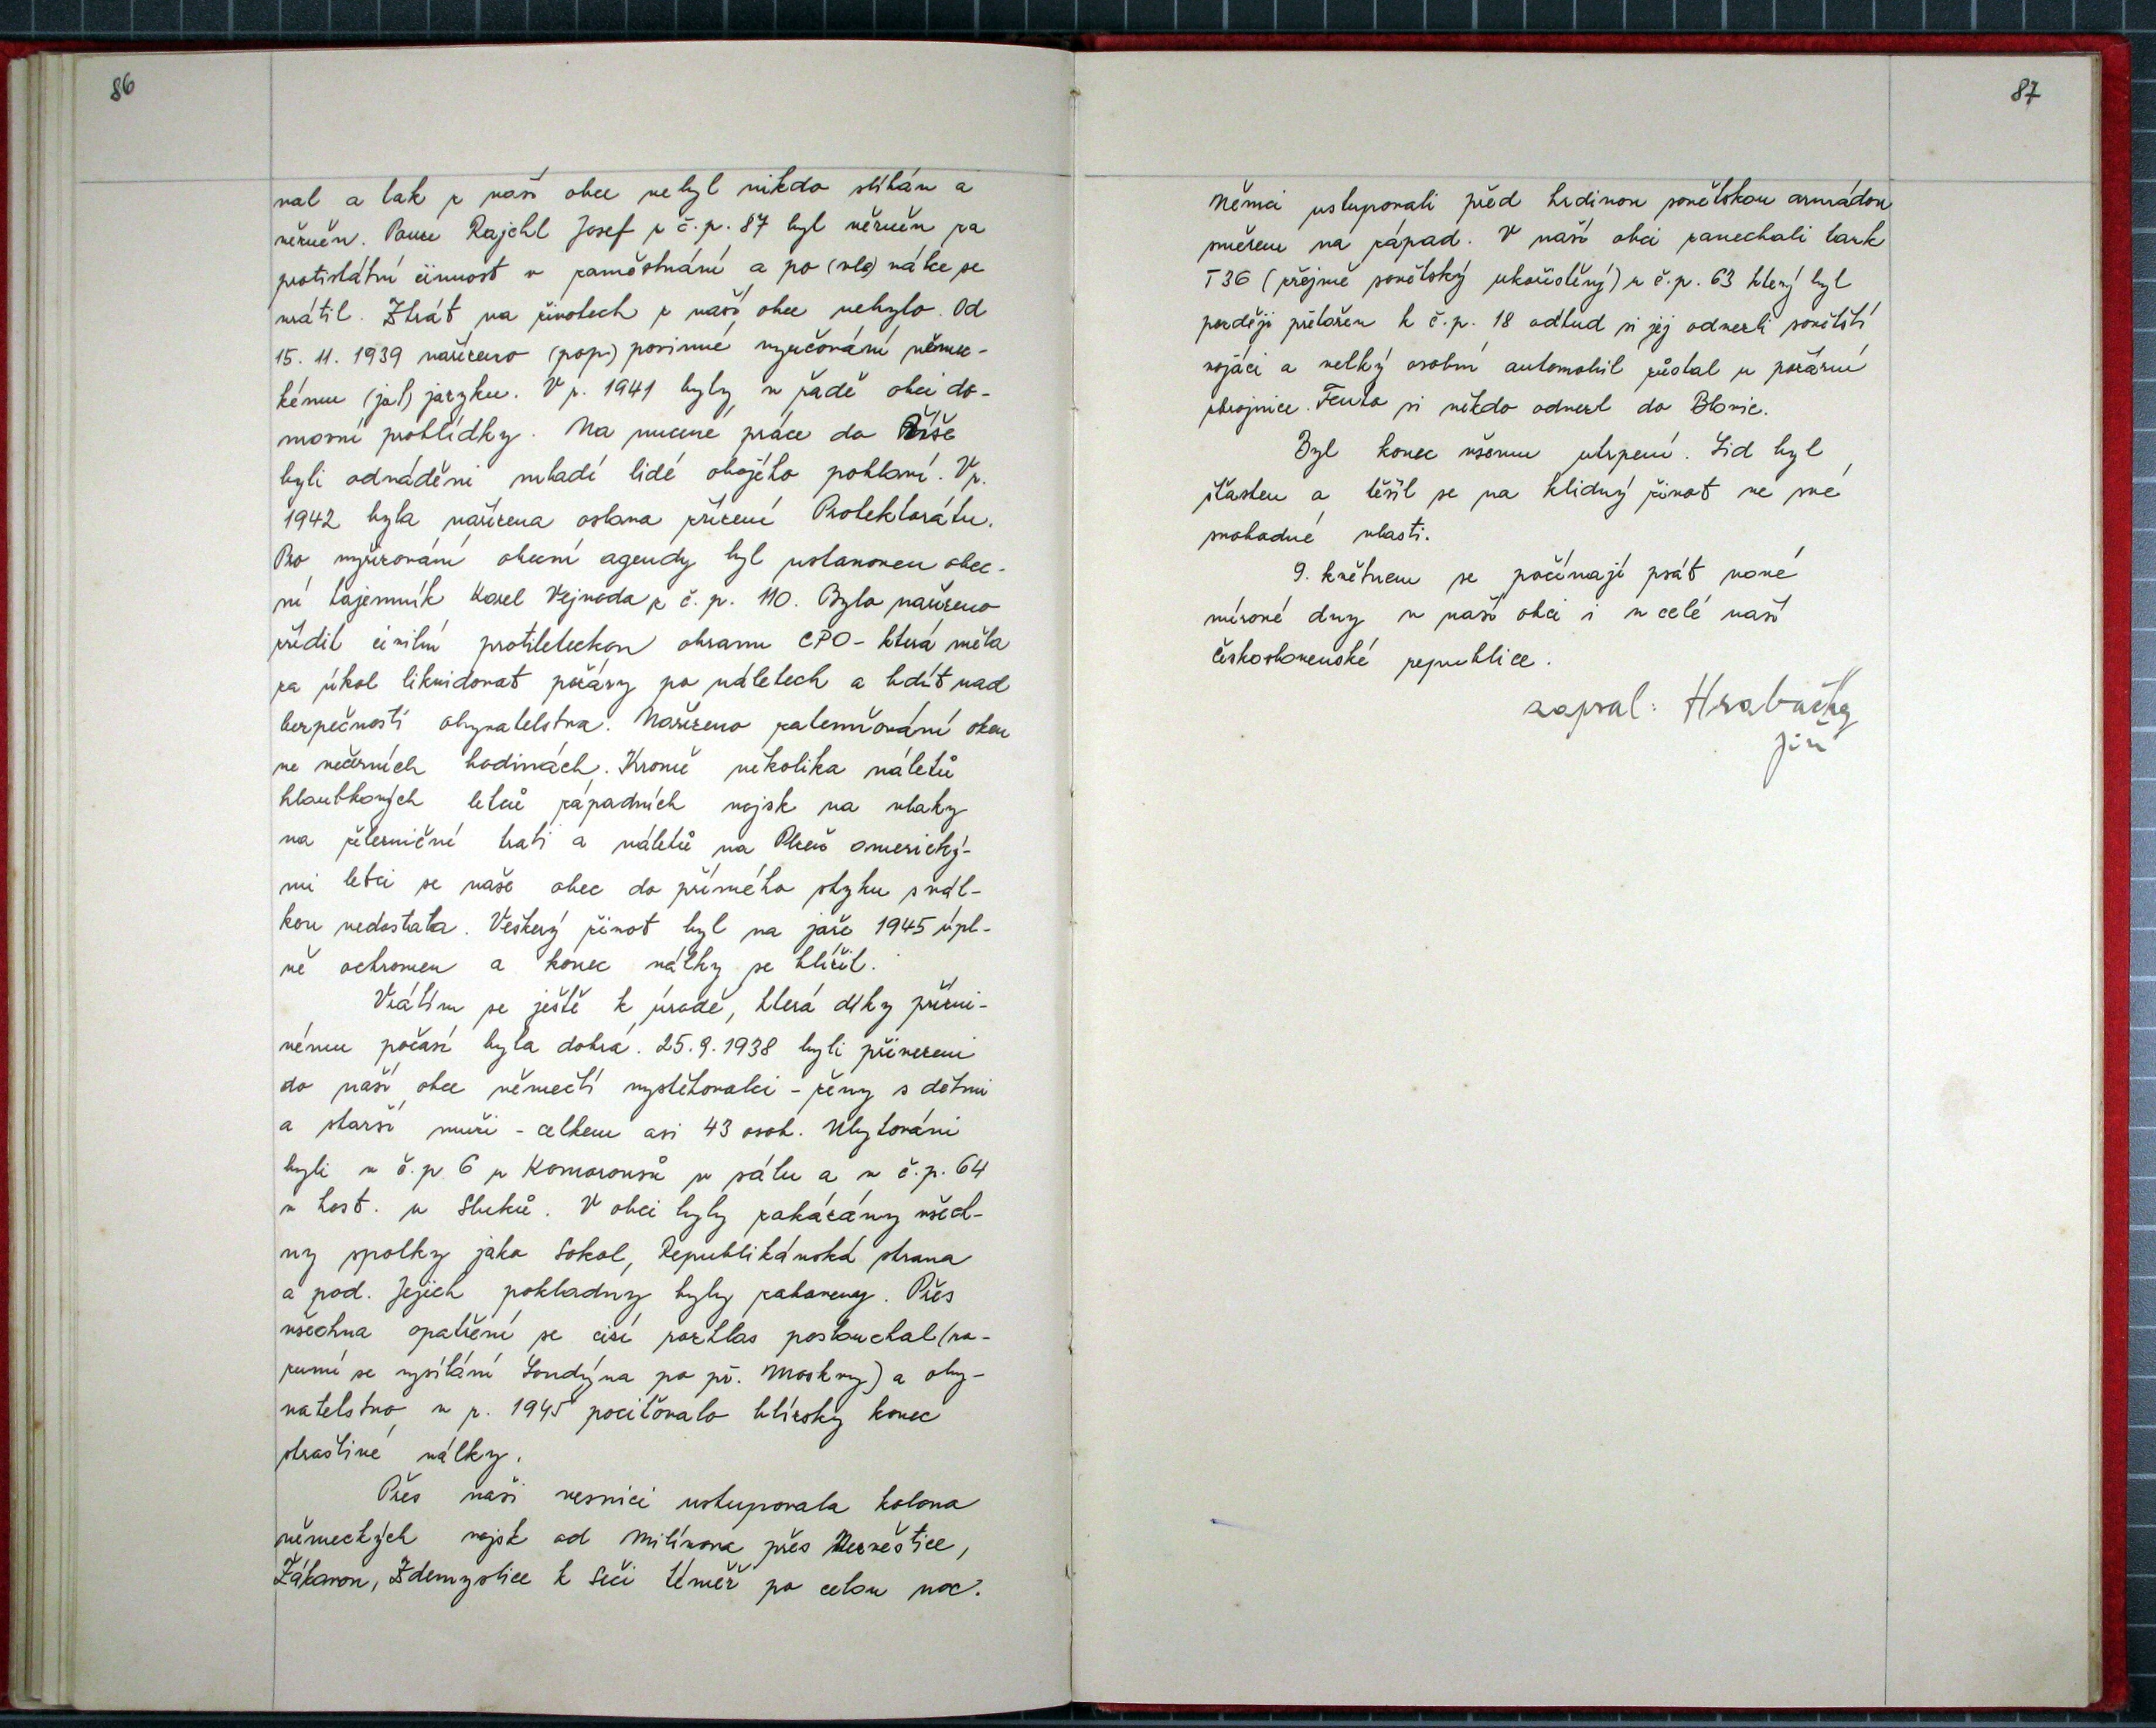 86
val a tak z naší obce nebyl nikdo stíhán a
vězněn. Pouze Rajchl Josef z č.p. 87 byl vězněn za
protistátní činnost v zaměstnání a po (vlo) válce se
vrátil. Ztrát na životech z naší obce nebylo. Od
15. 11. 1939 nařízeno (pop) povinné vyučování němec-
kému (jal) jazyku. V r. 1941 byly v řadě obcí do-
movní prohlídky. Na nucené práce do Říše
byli odváděni mladí lidé obojího pohlaví. V r.
1942 byla nařízena oslava zřízení Protektorátu.
Pro vyřizování obecní agendy byl ustanoven obec-
ní tajemník Karel Vejvoda z č.p. 110. Bylo nařízeno
zřídit civilní protileteckou obranu CPO - která měla
za úkol likvidovat požáry po náletech a bdít nad
bezpečností obyvatelstva. Nařízeno zatemňování oken
ve večerních hodinách. Kromě několika náletů
hloubkových letců západních vojsk na vlaky
na železniční trati a náletů na Plzeň americký-
mi letci se naše obec do přímého styku s vál-
kou nedostala. Veškerý život byl na jaře 1945 úpl-
ně ochromen a konec války se blížil.
Vrátím se ještě k úrodě, která díky přízni-
vému počasí byla dobrá. 25.9.1938 byli přivezeni
do naší obce němečtí vystěhovalci - ženy s dětmi
a starší muži - celkem asi 43 osob. Ubytováni
byli v č.p 6 u Komorousů v sálu a v č.p. 64
v host. u Sluků. V obci byly zakázány všech-
ny spolky jako Sokol, Republikánská strana
a pod. Jejich pokladny byly zabaveny. Přes
všechna opatření se cizí rozhlas poslouchal (ro-
zumí se vysílání Londýna po př. Moskvy) a oby-
vatelstvo v r. 1945 pociťovalo blízský konec
strašlivé války.
Přes naši vesnici ustupovala kolona
německých vojsk od Milínova přes Nezvěstice,
Žákavou, Zdemyslice k Seči téměř po celou noc.
87
Němci ustupovali před hrdinou sovětskou armádou
směrem na západ. V naší obci zanechali tank
T36 (zřejmě sovětský ukořistěný) u č.p. 63 který byl
později přetažen k č.p. 18 odtud si jej odvezli sovětští
vojáci a velký osobní automobil zůstal u požární
zbrojnice. Tento si někdo odvezl do Blovic.
Byl konec všemu utrpení. Lid byl
šťasten a těšil se na klidný život ve své
svobodné vlasti.
9. květnem se počínají psát nové
mírové dny v naší obci i v celé naší
československé republice.
zapsal: Hrabačka
Jiří